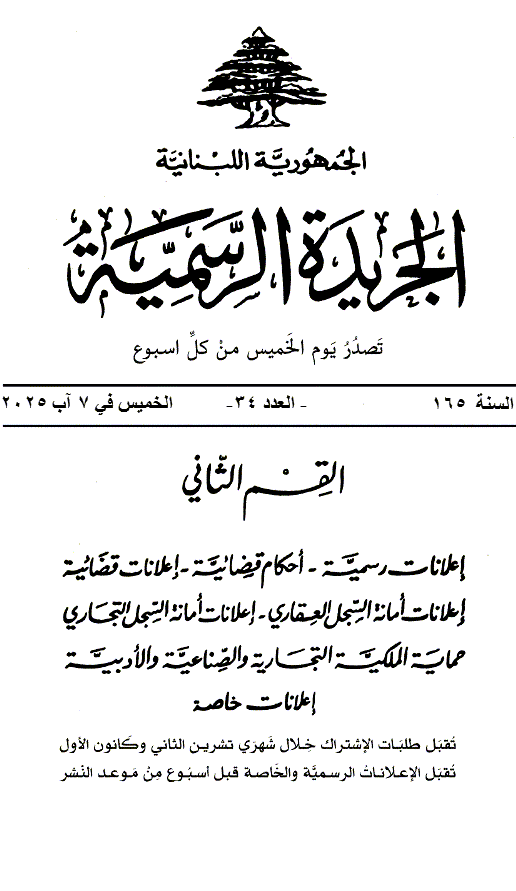 الجُمهُوريَّة اللبْنانيَّة
الجَريدَة الرسَّميَّة
تَصدُرُ يَوم الخَميس منْ كلِّ اسبوع
السنة ١٦٥ - العدد ٣٤- الخميس في ٧ آب ٢٠٢٥
القِسْم الثَّاني
إعلانات رسميَّة - أحكام قضائيَّة - إعلانات قضائية
إعلانات أمانة السِّجل العقاري - إعلانات أمانة السِّجل التجاري
حماية الملكيَّة التجارية والصِّناعيَّة والأدبيَّة
إعلانات خاصة
تُقبَل طلبَات الإشتراك خِلال شَهرَي تشرين الثاني وكَانون الأول
تُقبَل الإعلاناتُ الرسميَّة والخَاصة قبل أسبُوع مِنْ مَوعد النّشر